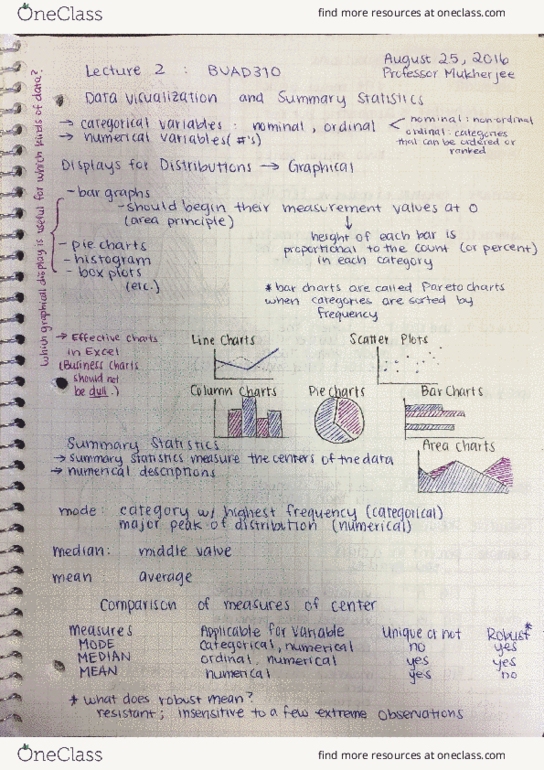 OneClass
find more resources at oneclass.com
August 25, 2016
Lecture 2 : BUAD310
Professor Mukherjee
Data Visualization and Summary Statistics
→ categorical variables : nominal, ordinal < nominal : non-ordinal
ordinal : categories that can be ordered or ranked
→ numerical variables (#'s)
Displays for Distributions → Graphical
which graphical display is useful for which kinds of data?
- bar graphs
- should begin their measurement values at 0
(area principle)
↓
height of each bar is
proportional to the count (or percent)
in each category
- pie charts
- histogram
- box plots
(etc.)
* bar charts are called Pareto charts
when categories are sorted by
frequency
→ Effective charts
in Excel
(Business charts
should not
be dull.)
Line Charts
Scatter Plots
Column Charts
Pie Charts
Bar Charts
Area Charts
Summary Statistics
→ summary statistics measure the centers of the data
→ numerical descriptions
mode: category w/ highest frequency (categorical)
major peak of distribution (numerical)
median: middle value
mean average
Comparison of measures of center
measures Applicable for variable Unique or not Robust*
MODE categorical, numerical no yes
MEDIAN ordinal, numerical yes yes
MEAN numerical yes no
* what does robust mean?
resistant; insensitive to a few extreme observations
OneClass
find more resources at oneclass.com